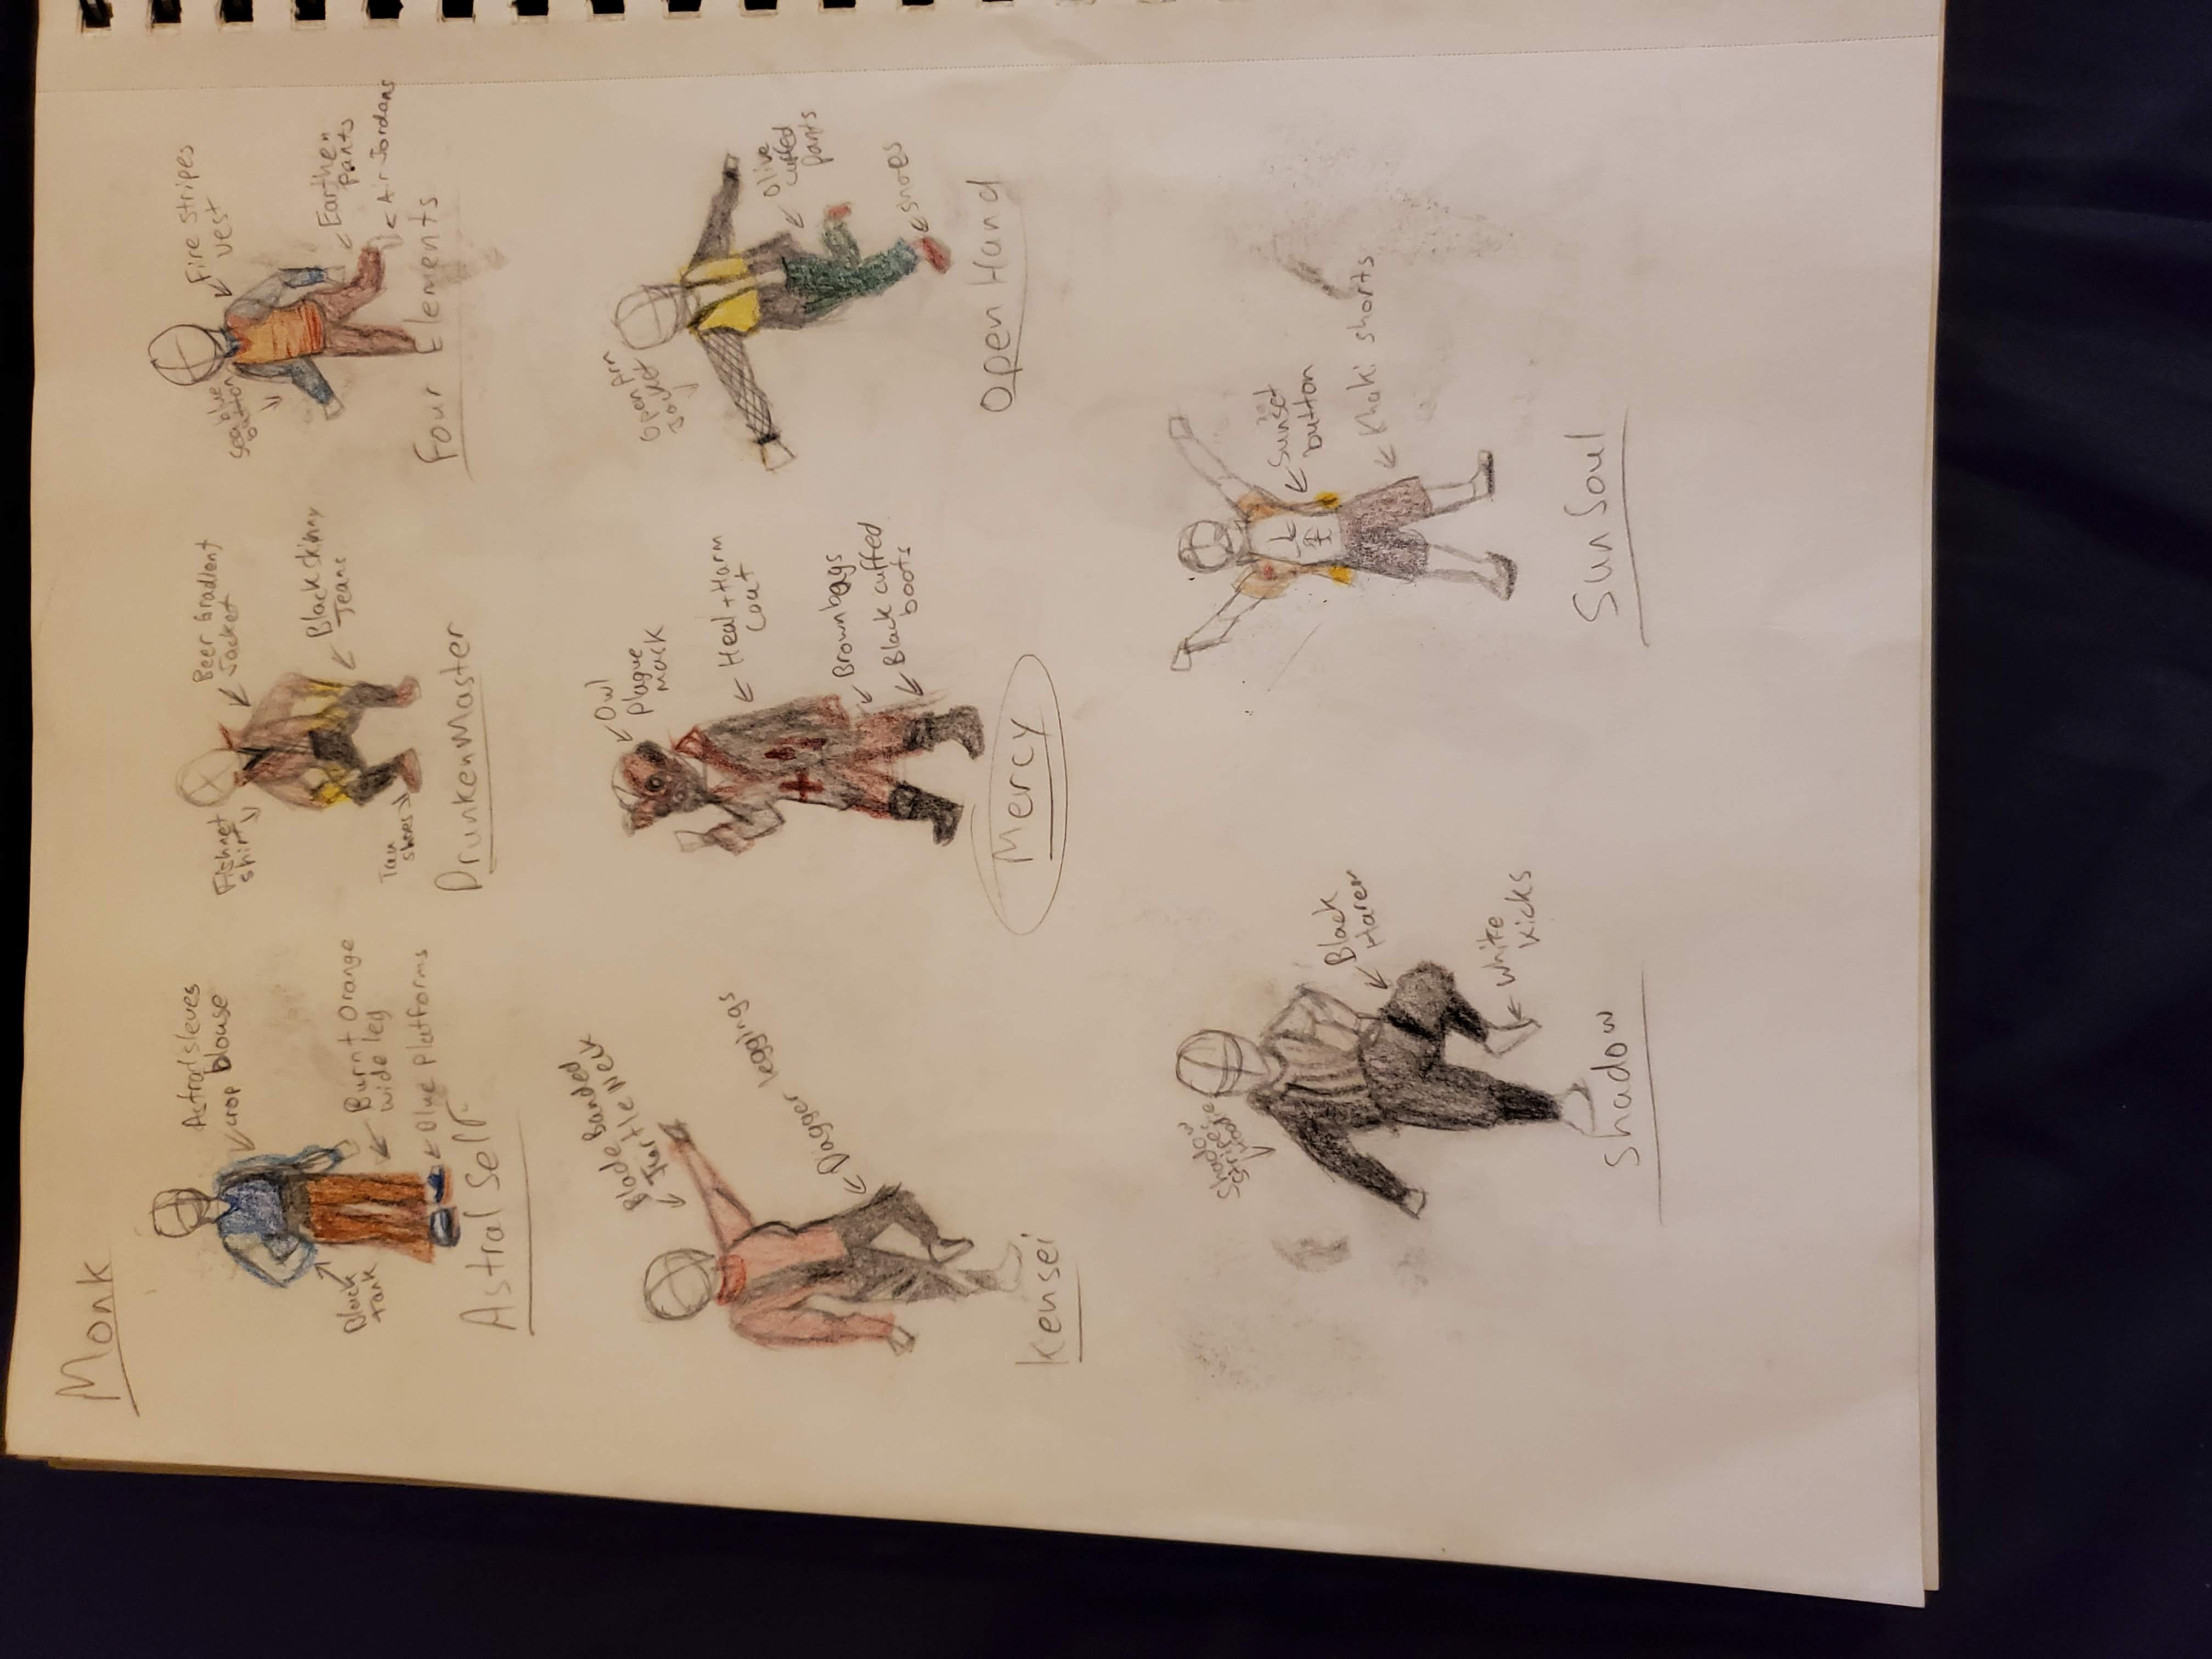 Monk
Astral sleves
crop blouse
Black
tank
Burnt Orange
wide leg
Blue Platforms
Astral Self
Fishnet
shirt
Beer Gradient
Jacket
Black skinny
Jeans
Tan
shoes
Drunken Master
Sea blue
button
Fire stripes
vest
Earthen
pants
Air Jordans
Four Elements
Blade Banded
Turtle Neck
Dagger leggings
Kensei
Owl
plague
mask
Heal + Harm
Coat
Brown bags
Black cuffed
boots
Mercy
Open Arm
Jacket
Olive
cuffed
pants
shoes
Open Hand
Shadow
stripes
Hoodie
Black
Harem
White
kicks
Shadow
Sunset
button
Khaki shorts
Sun Soul